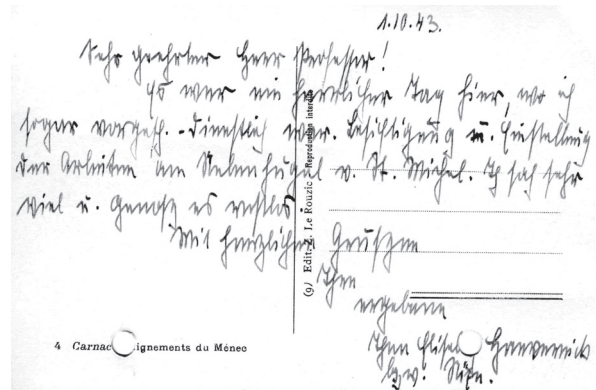 1.10.43.
Sehr geehrter Herr Professor!
Es war ein herrlicher Tag hier, wo ich
sogar vorgesch. - dienstlich war. Besichtigung u. Einstellung
der Arbeiten am Nebenhügel v. St. Michel. Ich sah sehr
viel u. genoß es restlos.
Mit herzlichen Grüßen
Ihre
ergebene
Elisabeth
(9) Edit. Z. Le Rouzic - Reproduction interdite
4 Carnac ignements du Ménec